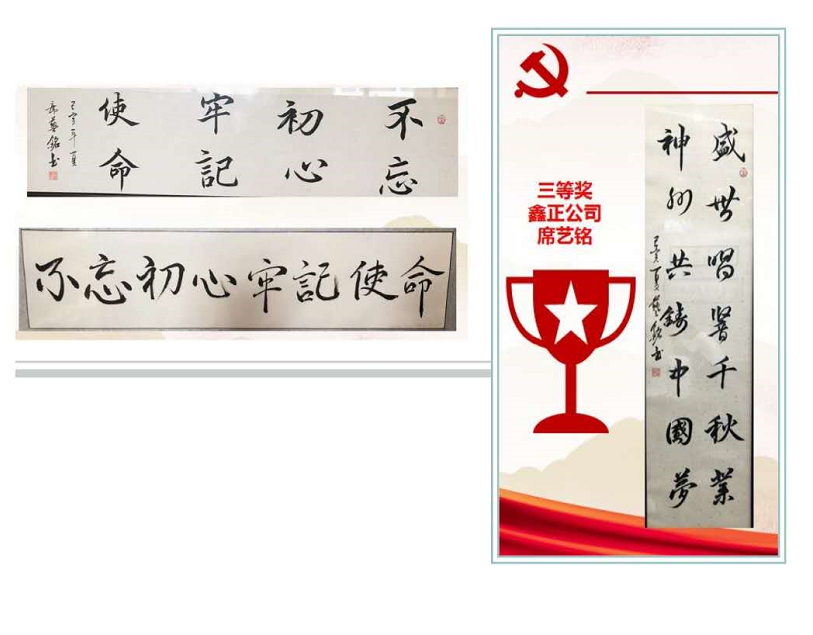 不忘
初心
牢記
使命
己亥年夏
席藝銘书
不忘初心牢記使命
三等奖
鑫正公司
席艺铭
盛世唱響千秋業
神州共鑄中國夢
己亥夏藝銘书